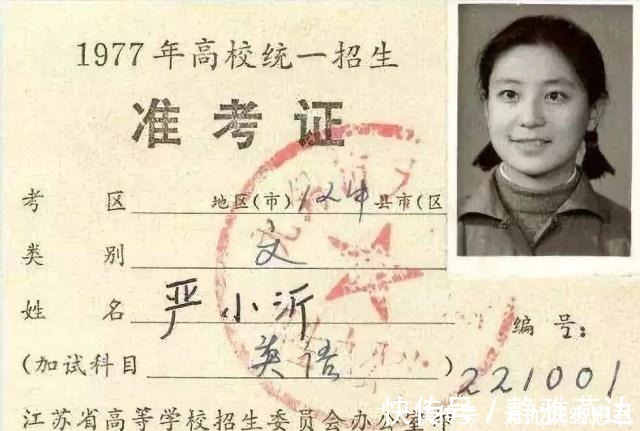 1977年高校统一招生
准考证
考区 地区(市) 12中 县市(区
类别 文
姓名 严小沂
编号:
(加试科目 英语 )
221001
江苏省高等学校招生委员会办公室
快传号 / 静雅燕达